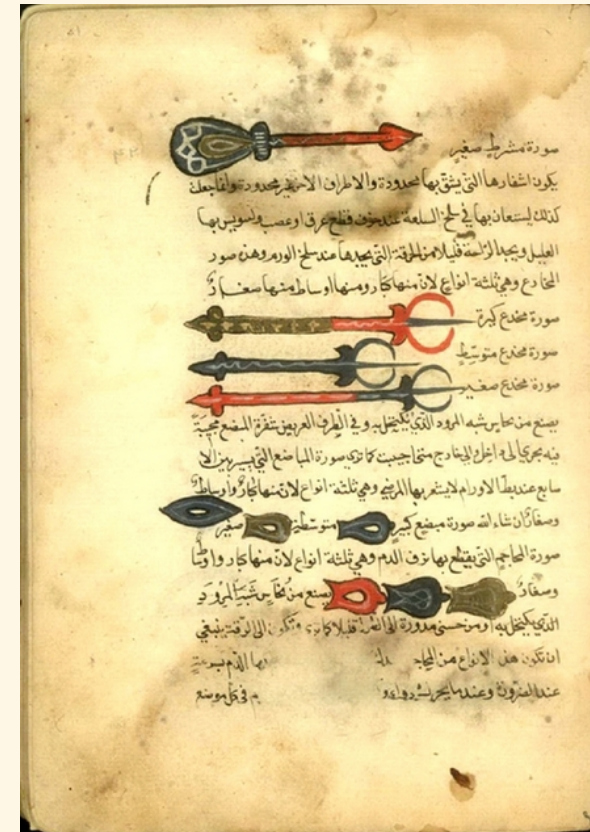 صورة مشرط صغير
يكون اشفارها التي يشق بها محدودة والاطراف الاخر غير محدودة وانما جعلت
كذلك ليستعان بها في سلخ السلعة عند خوف قطع عرق او عصب وليونس بها
العليل ويجد الراحة قليلا من الحرقة التي يجدها عند سلخ الورم وهذه صور
المخادع وهي ثلثة انواع لان منها كبار ومنها اوساط ومنها صغار
صورة مخدع كبيرة
صورة مخدع متوسط
صورة مخدع صغير
يصنع من نحاس شبه المرود الذي يكتحل به وفي الطرف العريض شفرة المبضع مخفية
فيه يجري الى داخل والى خارج متى احببت كما ترى صورة المباضع التي يستر بين الا
صابع عند بط الاورام لا يشعر بها المرضى وهي ثلثة انواع لان منها كبار واوساط
وصغار ان شاء الله صورة مبضع كبير متوسط صغير
صورة المحاجم التي يقطع بها نزف الدم وهي ثلثة انواع لان منها كبار واوسا
وصغار يصنع من نحاس شبه المرود
الذي يكتحل به او من حسنى مدورة الى الطول قليلا كما ترى وتكون الى الرقة ينبغي
ان تكون هذه الانواع من المحاجم بها الدم بسرعة
عند الضرورة وعند ما يحضرك دواء و في كل موضع